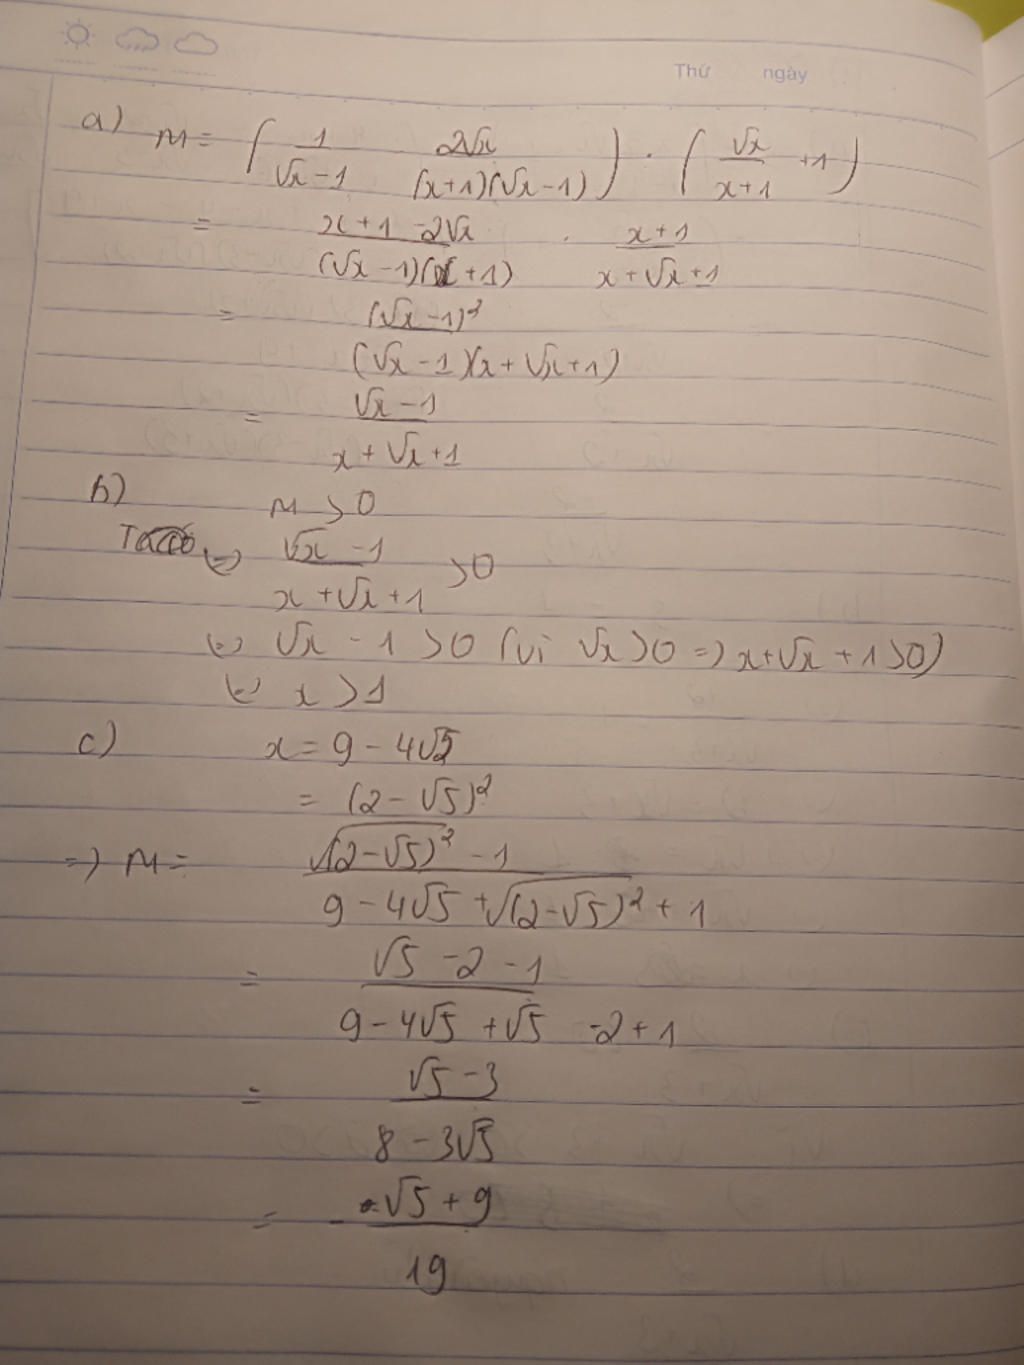 Thứ ngày
a) M = ( 1/(√x - 1) 2√x/((x+1)(√x-1)) ) . ( √x/(x+1) + 1 )
= (x + 1 - 2√x)/((√x - 1)(x + 1)) . (x + 1)/(x + √x + 1)
= (√x - 1)²/((√x - 1)(x + √x + 1))
= (√x - 1)/(x + √x + 1)
b) M > 0
(=) (√x - 1)/(x + √x + 1) > 0
(=) √x - 1 > 0 (vì √x > 0 =) x + √x + 1 > 0)
(=) x > 1
c) x = 9 - 4√5
= (2 - √5)²
=) M = (√(2-√5)² - 1)/(9 - 4√5 + √(2-√5)² + 1)
= (√5 - 2 - 1)/(9 - 4√5 + √5 - 2 + 1)
= (√5 - 3)/(8 - 3√5)
= - (√5 + 9)/19